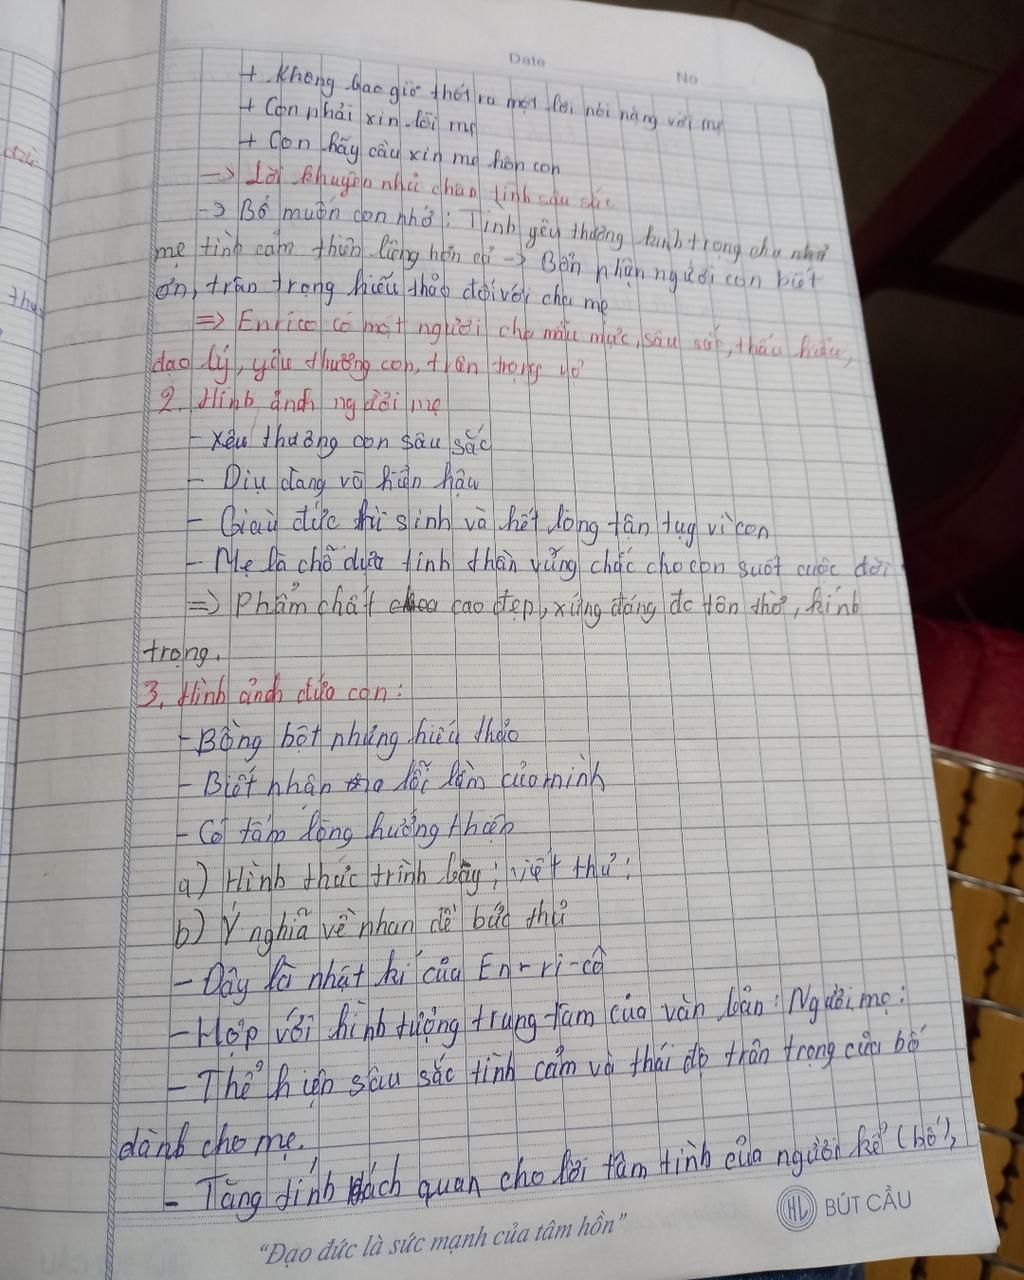 Date No
+ Không bao giờ thốt ra một lời nói nặng với mẹ
+ Con phải xin lỗi mẹ
+ Con hãy cầu xin mẹ hôn con
-> Lời khuyên nhủ chân tình sâu sắc
-> Bố muốn con nhớ: Tình yêu thương kính trọng cha
mẹ tình cảm thiêng liêng hơn cả -> Bổn phận người con biết
ơn, trân trọng hiếu thảo đối với cha mẹ
=> Enrico có một người cha mẫu mực, sâu sắc, thấu hiểu,
đạo lý, yêu thương con, trân trọng vợ
2. Hình ảnh người mẹ
- Yêu thương con sâu sắc
- Dịu dàng và hiền hậu
- Giàu đức hi sinh và hết lòng tận tụy vì con
- Mẹ là chỗ dựa tinh thần vững chắc cho con suốt cuộc đời
=> Phẩm chất cao đẹp, xứng đáng đc tôn thờ, kính
trọng.
3. Hình ảnh đứa con:
- Bồng bột nhưng hiếu thảo
- Biết nhận ra lỗi lầm của mình
- Có tấm lòng hướng thiện
a) Hình thức trình bày: viết thư:
b) Ý nghĩa về nhan đề bức thư
- Đây là nhật kí của En-ri-cô
- Hợp với hình tượng trung tâm của văn bản: Người mẹ:
- Thể hiện sâu sắc tình cảm và thái độ trân trọng của bố
dành cho mẹ.
- Tăng tính khách quan cho lời tâm tình của người kể (bố),
HL BÚT CẦU
"Đạo đức là sức mạnh của tâm hồn"